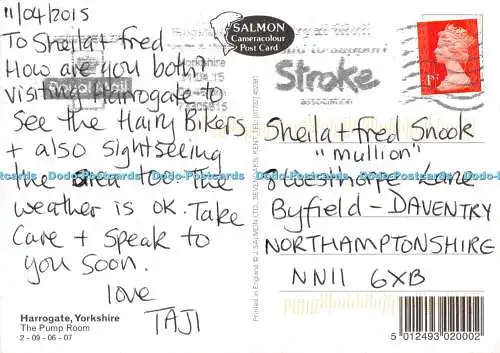 11/04/2015
To Sheila + fred
How are you both?
visiting Harrogate to
See the Hairy Bikers
+ also sightseeing
the area too. The
weather is OK. Take
Care + Speak to
you soon.
love
TAJI
Harrogate, Yorkshire
The Pump Room
2 - 09 - 06 - 07
SALMON
Cameracolour
Post Card
Printed in England © J. SALMON LTD., SEVENOAKS, KENT. TEL:
Royal Mail
to support
Stroke
association
1ST
Sheila + fred Snook
"Mullion"
8 Westhorpe Lane
Byfield - DAVENTRY
NORTHAMPTONSHIRE
NN11 6XB
5 012493 020002
Dodo-Postcards Dodo-Postcards Dodo-Postcards Dodo-Postcards